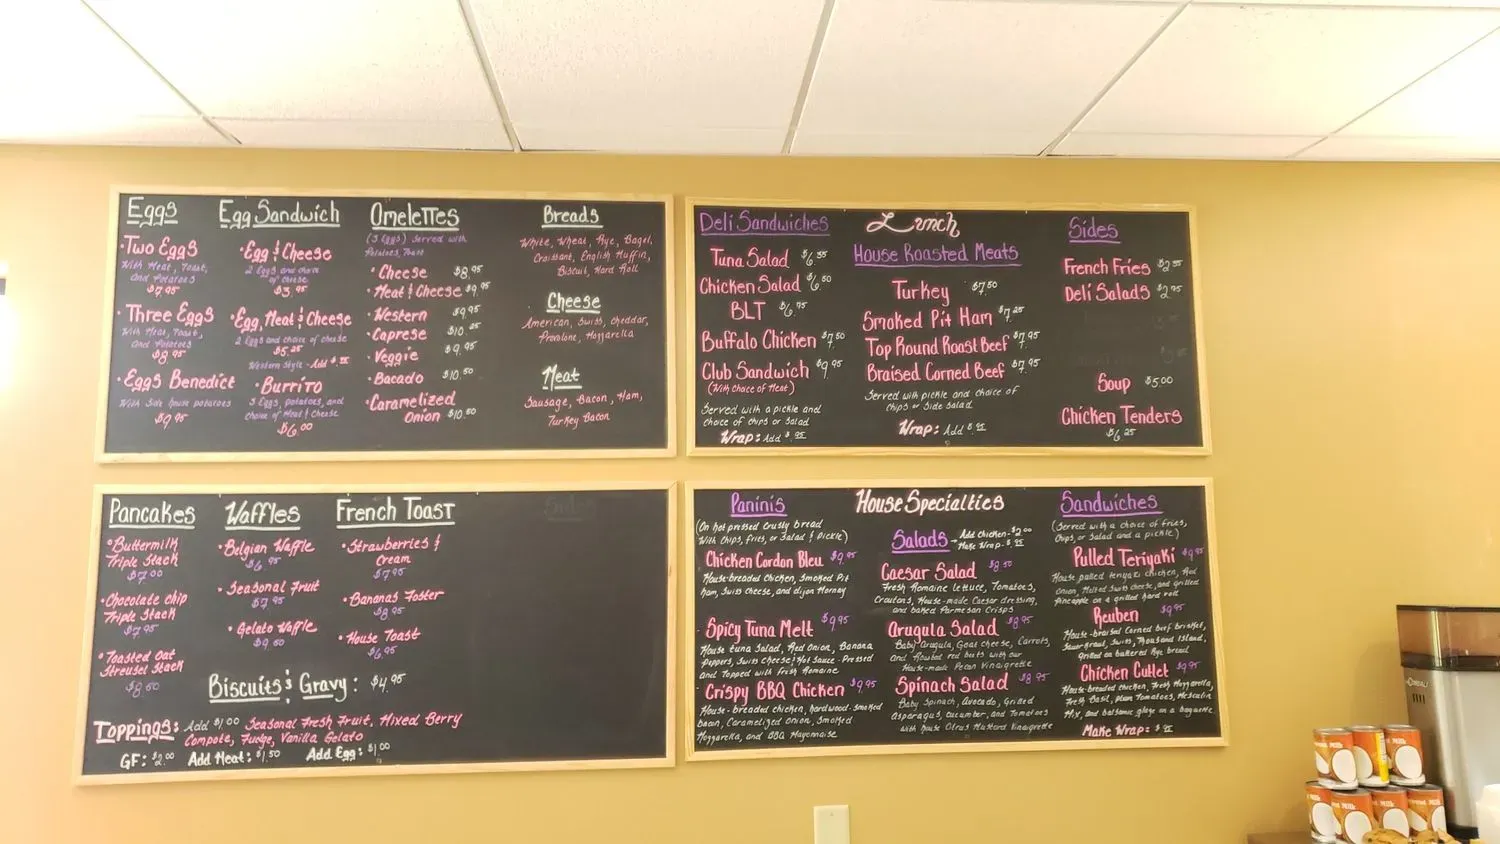 Eggs
• Two Eggs
With Meat, Toast,
And Potatoes
$7.95
• Three Eggs
With Meat, Toast,
And Potatoes
$8.95
• Eggs Benedict
With Side house potatoes
$9.95
Egg Sandwich
• Egg & Cheese
2 Eggs and choice
of cheese
$3.95
• Egg, Meat & Cheese
2 Eggs and choice of cheese
$5.25
Western Style - Add
• Burrito
3 Eggs, potatoes, and
choice of Meat & Cheese
$6.00
Omelettes
(3 Eggs) Served with
Potatoes, Toast
• Cheese $8.95
• Meat & Cheese $9.95
• Western $9.95
• Caprese $10.25
• Veggie $9.95
• Bacado $10.50
• Caramelized
Onion $10.50
Breads
White, Wheat, Rye, Bagel,
Croissant, English Muffin,
Biscuit, Hard Roll
Cheese
American, Swiss, Cheddar,
Provolone, Mozzarella
Meat
Sausage, Bacon, Ham,
Turkey Bacon
Lunch
Deli Sandwiches
Tuna Salad
Chicken Salad $6.50
BLT $6.75
Buffalo Chicken $7.50
Club Sandwich $9.95
(With choice of Meat)
Served with a pickle and
choice of chips or salad
Wrap: Add $.95
House Roasted Meats
Turkey $7.50
Smoked Pit Ham $7.25
Top Round Roast Beef $7.95
Braised Corned Beef $7.95
Served with pickle and choice of
chips or side salad
Wrap: Add $.95
Sides
French Fries
Deli Salads $2.95
Soup $5.00
Chicken Tenders
$6.25
Pancakes
• Buttermilk
Triple Stack
$7.00
• Chocolate chip
Triple Stack
$7.95
• Toasted Oat
Streusel Stack
$8.50
Waffles
• Belgian Waffle
$6.95
• Seasonal Fruit
$7.95
• Gelato Waffle
$9.50
French Toast
• Strawberries &
Cream
$7.95
• Bananas Foster
$8.95
• House Toast
$6.95
Biscuits & Gravy: $4.95
Toppings: Add $1.00 Seasonal Fresh Fruit, Mixed Berry
Compote, Fudge, Vanilla Gelato
GF: $2.00 Add Meat: $1.50 Add Egg: $1.00
House Specialties
Paninis
(On hot pressed crusty bread
With chips, fries, or Salad & Pickle)
Chicken Cordon Bleu $9.95
House-breaded Chicken, Smoked Pit
ham, Swiss Cheese, and dijon Mornay
Spicy Tuna Melt $9.95
House tuna Salad, Red Onion, Banana
Peppers, Swiss Cheese & Hot Sauce - Pressed
and Topped with Fresh Romaine
Crispy BBQ Chicken $9.95
House-breaded chicken, hardwood-smoked
bacon, Caramelized Onion, Smoked
Mozzarella, and BBQ Mayonnaise
Salads → Add Chicken - $2.00
Make Wrap - $.95
Caesar Salad $8.50
Fresh Romaine Lettuce, Tomatoes,
Croutons, House-made Caesar dressing,
and baked Parmesan Crisps
Arugula Salad $8.95
Baby Arugula, Goat Cheese, Carrots,
and Roasted red beets with our
House-made Pecan Vinaigrette
Spinach Salad $8.95
Baby Spinach, Avocado, Grilled
Asparagus, cucumber, and Tomatoes
with house Citrus Mustard Vinaigrette
Sandwiches
(Served with a choice of fries,
Chips, or Salad and a pickle)
Pulled Teriyaki $9.95
House pulled teriyaki chicken, Red
Onion, Melted Swiss cheese, and grilled
Pineapple on a grilled hard roll
Reuben $9.95
House-braised Corned beef brisket,
Sauerkraut, Swiss, Thousand Island,
Grilled on buttered Rye bread
Chicken Cutlet $9.95
House-breaded chicken, Fresh Mozzarella,
Fresh Basil, Plum Tomatoes, Mesculin
Mix, and balsamic glaze on a baguette
Make Wrap: $.95